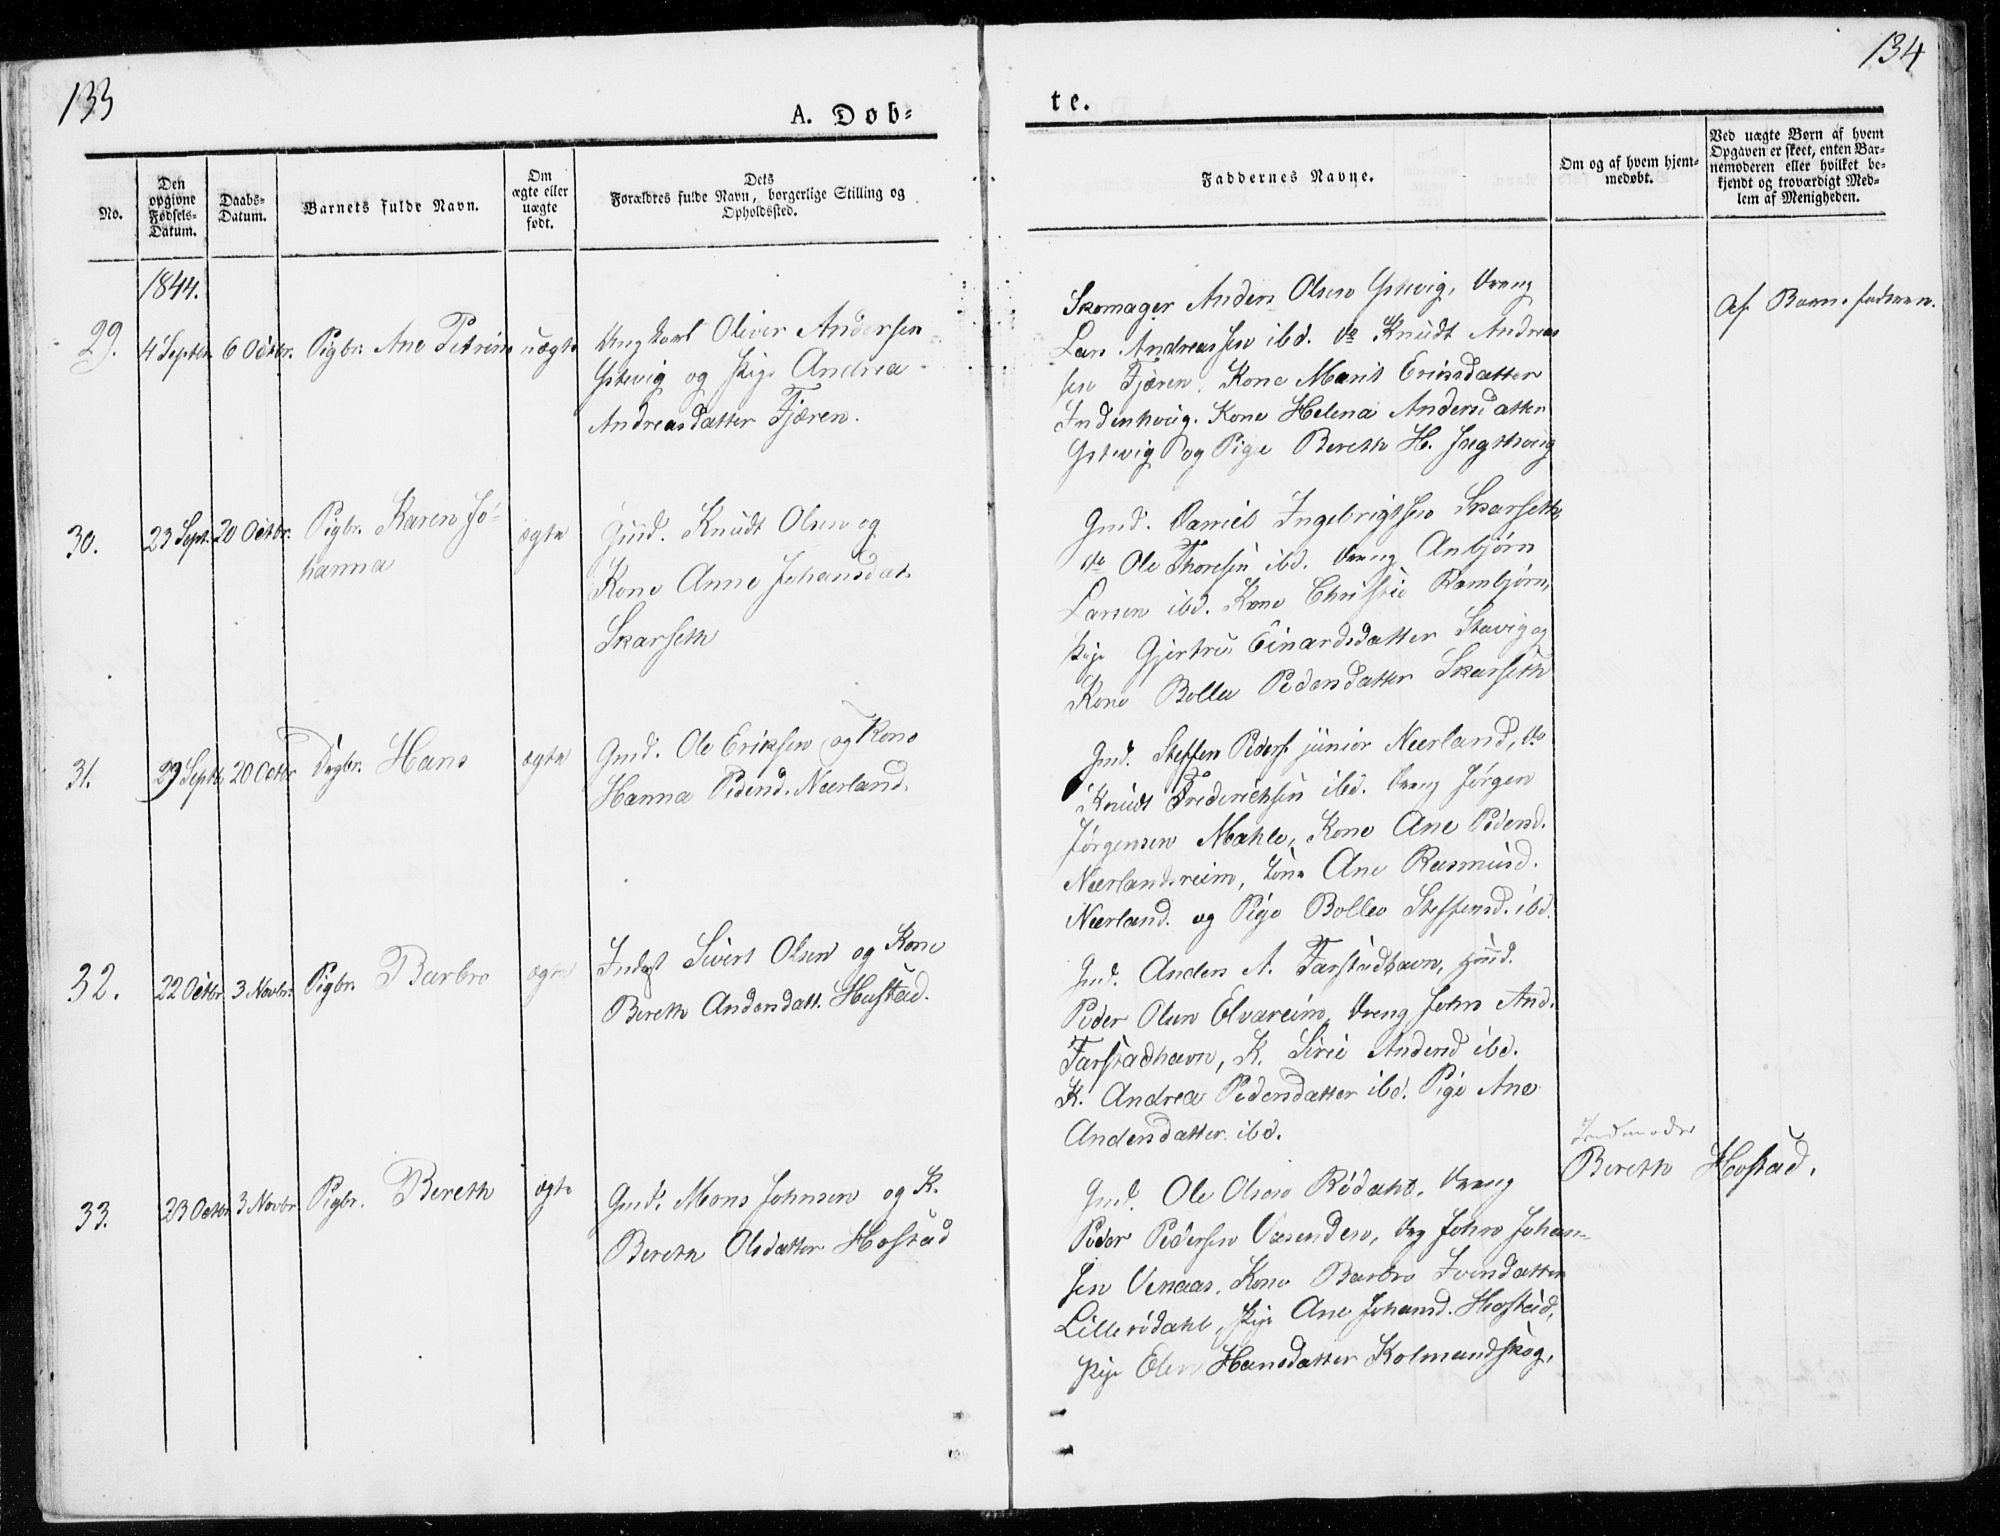 133
134
A. Døb-
te.
No.
Den opgivne Fødsels-Datum.
Daabs-Datum.
Barnets fulde Navn.
Om ægte eller uægte født.
Dets Forældres fulde Navn, borgerlige Stilling og Opholdssted.
Faddernes Navne.
Om og af hvem hjemmedøbt.
Ved uægte Børn af hvem Opgaven er skeet, enten Barnemoderen eller hvilket bekjendt og troværdigt Medlem af Menigheden.
1844.
29. 4 Septbr. 6 Octbr. Pigbr. Ane Petrine uægte
Ungkarl Oliver Andersen
Ystevig og Pige Andrea
Andreasdatter Fjæren.
Skomager Anders Olsen Ystevig, Dreng
Lars Andreassen ibd. do Knudt Andreas
sen Fjæren, Kone Marit Eriksdatter
Indenhvig. Kone Helena Andersdatter
Ystevig og Pige Bereth H.
Af Barnefaderen.
30. 23 Sept. 20 Octbr. Pigbr. Karen Jo-
hanna
ægte
Gmd. Knudt Olsen og
Kone Anne Johansdat.
Skarseth
Gmd. Daniel Ingebrigtsen Skarseth,
do Ole Thoresen ibd. Dreng Anbjørn
Larsen ibd. Kone Christie Rambjørn,
Pige Gjertru Einardsdatter Stavig og
Kone Bolla Pedersdatter Skarseth
31. 29 Septbr. 20 Octbr. Drgbr. Hans ægte
Gmd. Ole Eriksen og Kone
Hanna Pedersd. Nærland.
Gmd. Steffen Peders. junior Nærland, do
Knudt Frederichsen ibd. Dreng Jørgen
Jørgensen Mahle, Kone Ane Pedersd.
Nærlandsreim, Kone Ane Rasmusd.
Nærland. og Pige Bolla Steffensd. ibd.
32. 22 Octbr. 3 Novbr. Pigbr. Barbro ægte
Inderst Sivert Olsen og Kone
Bereth Andersdatt. Hustad.
Gmd. Anders A. Farstadhavn, Gmd.
Peder Olsen Elvareim, Dreng John And.
Farstadhavn, K. Sirie Andersd ibd.
K. Andrea Pedersdatter ibd. Pige Ane
Andersdatter ibd.
33. 23 Octbr. 3 Novbr. Pigbr. Bereth ægte
Gmd. Mons Johnsen og K.
Bereth Olsdatter Hostad
Gmd. Ole Olsen Rødahl, Dreng
Peder Pedersen Vasenden, Drg John Johan-
sen Venaas, Kone Barbro Iversdatter
Lillerødahl, Pige Ane Johansd. Hostad,
Pige Elen Hansdatter Kolmandskog,
Jordmoder
Bereth Hostad.